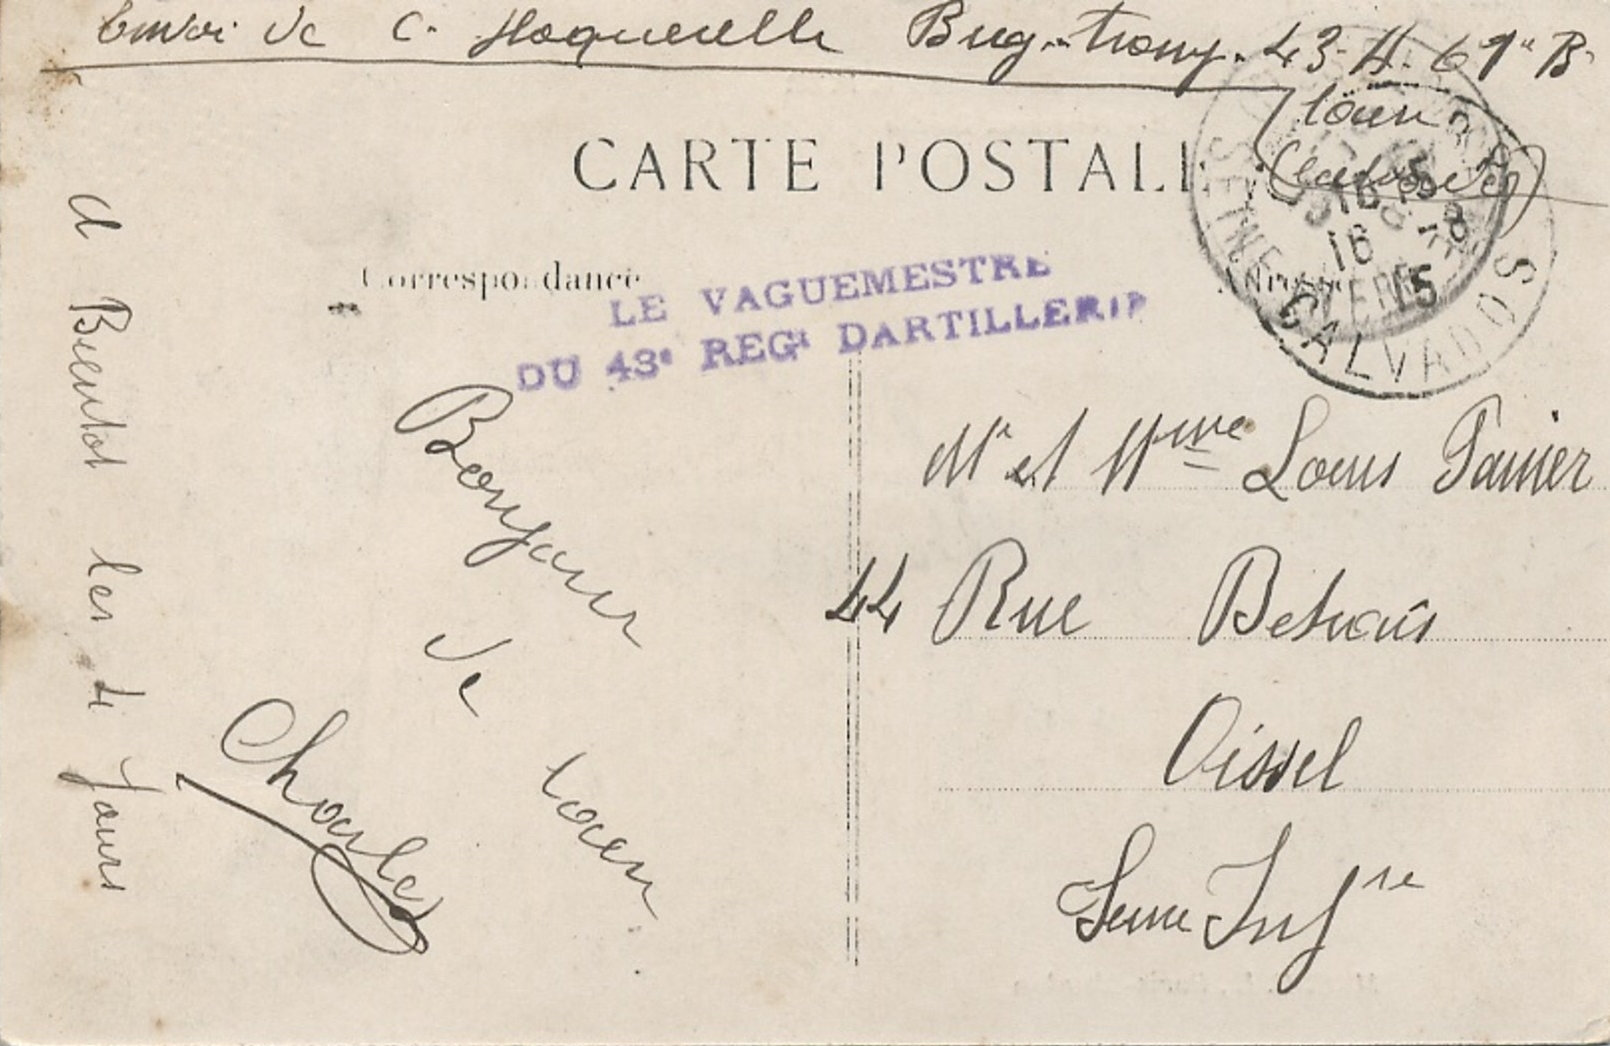 Envoi de C. Hoquerelle Brig. tromp. 43 A. 61e B.
Caen
(Calvados)
CARTE POSTALE
Correspondance
Adresse
LE VAGUEMESTRE
DU 43e REGt DARTILLERIE
SEINE
16 15
16 -8
15
CALVADOS
A Bientot les 4 Jours
Bonjour
de
Caen
Charles
Mr et Mme Louis Panier
44 Rue
Oissel
Seine Infre